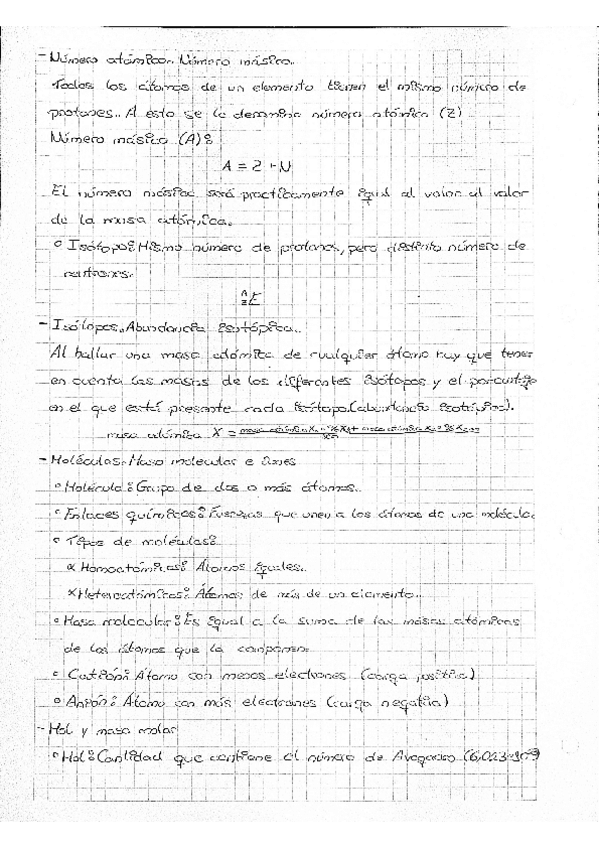 - Número atómico. Número másico.
Todos los átomos de un elemento tienen el mismo número de
protones. A esto se le denomina número atómico (Z)
Número másico (A):
A = Z + N
El número másico será practicamente igual al valor al valor
de la masa atómica.
º Isótopo: Mismo número de protones, pero distinto número de
neutrones.
A Z E
- Isótopos. Abundancia isotópica.
Al hallar una masa atómica de cualquier átomo hay que tener
en cuenta las masas de los diferentes isótopos y el porcentaje
en el que está presente cada isótopo (abundancia isotópica).
masa atómica X =
- Moléculas. Masa molecular e iones
º Molécula: Grupo de dos o más átomos.
º Enlaces químicos: Fuerzas que unen a los átomos de una molécula.
º Tipos de moléculas:
x Homoatómicas: Átomos iguales.
x Heteroatómicas: Átomos de más de un elemento.
º Masa molecular: Es igual a la suma de las masas atómicas
de los átomos que la componen.
º Catión: Átomo con menos electrones (carga positiva)
º Anión: Átomo con más electrones (carga negativa)
- Mol y masa molar
º Mol: Cantidad que contiene el número de Avogadro (6,023·10²³)